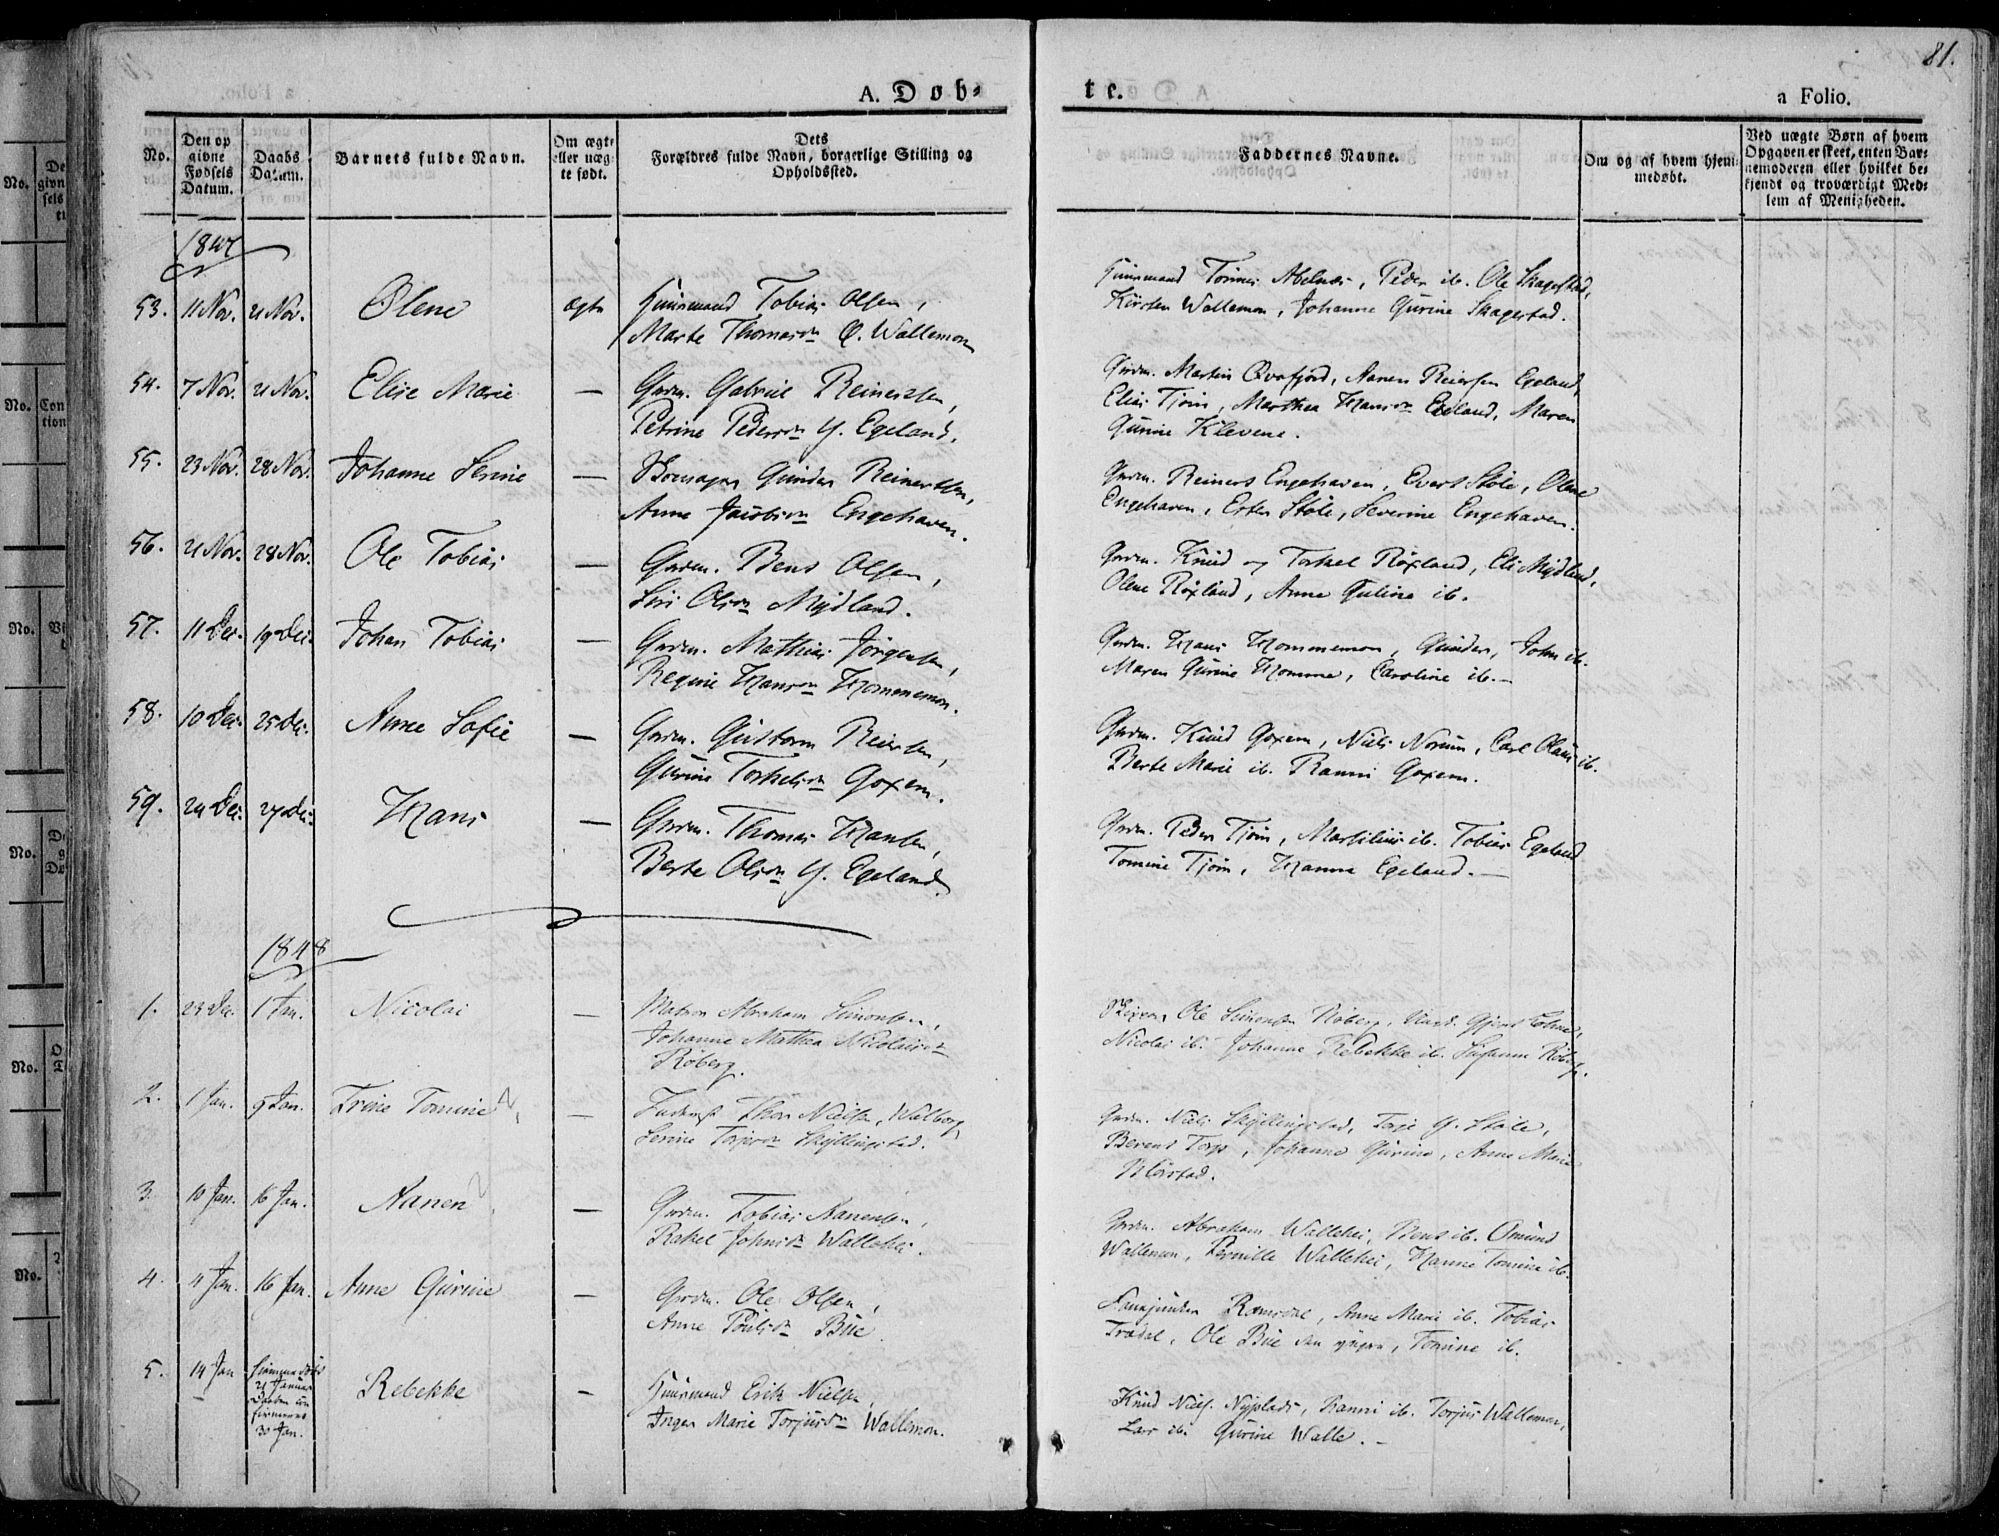 81.
A. Døb-
te.
a Folio.
No.
Den op
givne
Fødsels
Datum.
Daabs
Datum.
Barnets fulde Navn.
Om ægte
eller uæg-
te født.
Dets
Forældres fulde Navn, borgerlige Stilling og
Opholdssted.
Faddernes Navne.
Om og af hvem hjem-
medøbt.
Ved uægte Børn af hvem
Opgaven er skeet, enten Bar-
nemoderen eller hvilket be-
kjendt og troværdigt Med-
lem af Menigheden.
1847
53. 11 Nov. 21 Nov. Olene ægte Huusmand Tobias Olsen,
Marte Thomasdr Ø. Wallemon
Huusmand Tønnes Abelnes, Peder ib. Ole Skagestad,
Kirsten Wallemon, Johanne Gurine Skagestad.
54. 7 Nov. 21 Nov. Elise Marie — Grdm. Gabriel Reinertsen,
Petrine Pedersdr Y. Egeland.
Grdm. Martin Qvafjord, Aanen Reiersen Egeland,
Elias Tjøm, Marthea Hansdr Egeland, Maren
Gurine Klevene.
55. 23 Nov. 28 Nov. Johanne Serine — Skomager Gunder Reinertsen,
Anne Jacobsdr Engehaven.
Grdm. Reinert Engehaven, Evert Støle, Olene
Engehaven, Ester Støle, Severine Engehaven.
56. 21 Nov. 28 Nov. Ole Tobias — Grdm. Bent Olsen,
Siri Olsdr Mydland.
Grdm. Knud og Torkel Røxland, Eli Mydland,
Olene Røxland, Anne Guline ib.
57. 11 Dec. 19 Dec. Johan Tobias — Grdm. Mathias Jørgensen,
Regine Hansdr Hommemon.
Grdm. Hans Hommemon, Gunder, John ib.
Maren Gurine Homme, Caroline ib. —
58. 10 Dec. 25 Dec. Anne Sofie — Grdm. Guttorm Reiersen,
Gurine Torkelsdr Goxem.
Grdm. Knud Goxem, Niels Norum, Carl Olaus ib.
Berte Marie ib. Ranni Goxem.
59. 24 Dec. 27 Dec. Hans — Grdm. Thomas Hansen,
Berte Olsdr Y. Egeland.
Grdm. Peder Tjøm, Marsilius ib. Tobias Egeland
Tomine Tjøm, Hanna Egeland. —
1848
1. 23 Dec. 1 Jan. Nicolai — Matros Abraham Simonsen,
Johanne Mathea Nicolaisdr
Røberg.
Ole Simonsen Røberg,
Nicolai ib. Johanne Rebekke ib. Susanne Røberg.
2. 1 Jan. 9 Jan. Trine Tomine — Thor Nielsen, Walborg
Serine Torjesdr Skyllingstad.
Grdm. Niels Skyllingstad, Torje Y. Støle,
Berent Torp, Johanne Gurine, Anne Marie
3. 10 Jan. 16 Jan. Aanen — Grdm. Tobias Aanensen,
Rakel Johnsdr Wallehei.
Grdm. Abraham Wallehei, Bent ib. Omund
Wallemon, Pernille Wallehei, Hanne Tomine ib.
4. 4 Jan. 16 Jan. Anne Gurine — Grdm. Ole Olsen,
Anne Poulsdr Bue.
Ramsdal, Anne Marie ib. Tobias
Tradal, Ole Bue den yngre, Tomine ib.
5. 14 Jan hjemmedøbt
21 Januar
Daaben con
firmeret
30 Jan.
Rebekke — Huusmand Erik Nielsen,
Inger Marie Torjusdr Wallemon.
Knud Niels. Nyplads, Ranni ib. Torjus Wallemon,
Lars ib. Gurine Walle. —